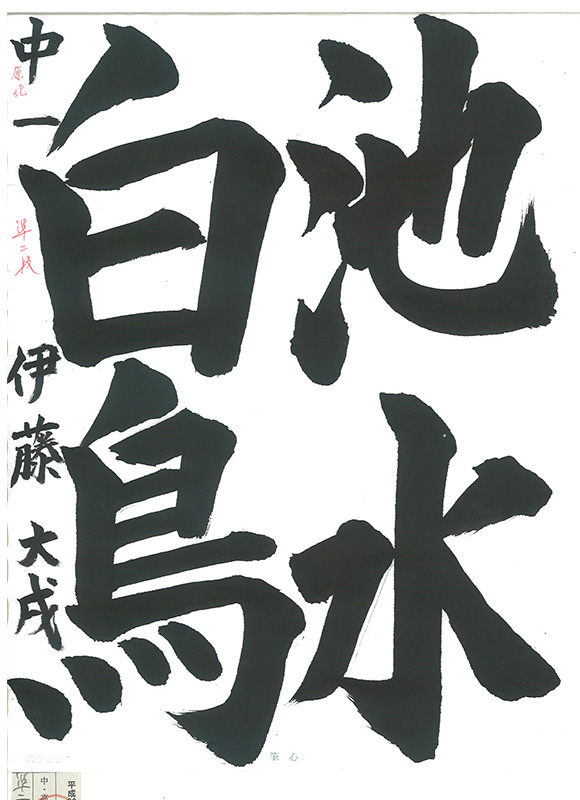 池水
白鳥
中一
原北
準二段
伊藤 大成
筆心
平成
中・高
準二